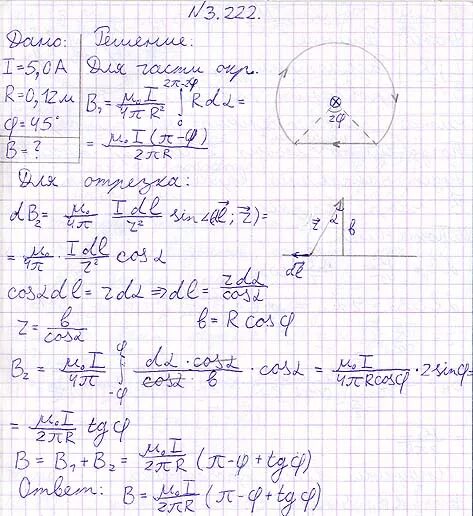 N3.222.
Дано: Решение:
I=5,0A Для части окр.
R=0,12м B₁=μ₀I/4πR² ∫₀^(2π-2φ) Rdα=
φ=45° =μ₀I(π-φ)/2πR
B=?
2φ
Для отрезка:
dB₂=μ₀/4π Idl/r² sin∠(dl⃗;r⃗)=
r⃗ α b
dl⃗
=μ₀/4π·Idl/r² cosα
cosαdl=rdα⇒dl=rdα/cosα
r=b/cosα b=Rcosφ
B₂=μ₀I/4π ∫₋φ^φ dα·cosα/cosα·b·cosα=μ₀I/4πRcosφ·2sinφ=
=μ₀I/2πR tgφ
B=B₁+B₂=μ₀I/2πR(π-φ+tgφ)
Ответ: B=μ₀I/2πR(π-φ+tgφ)